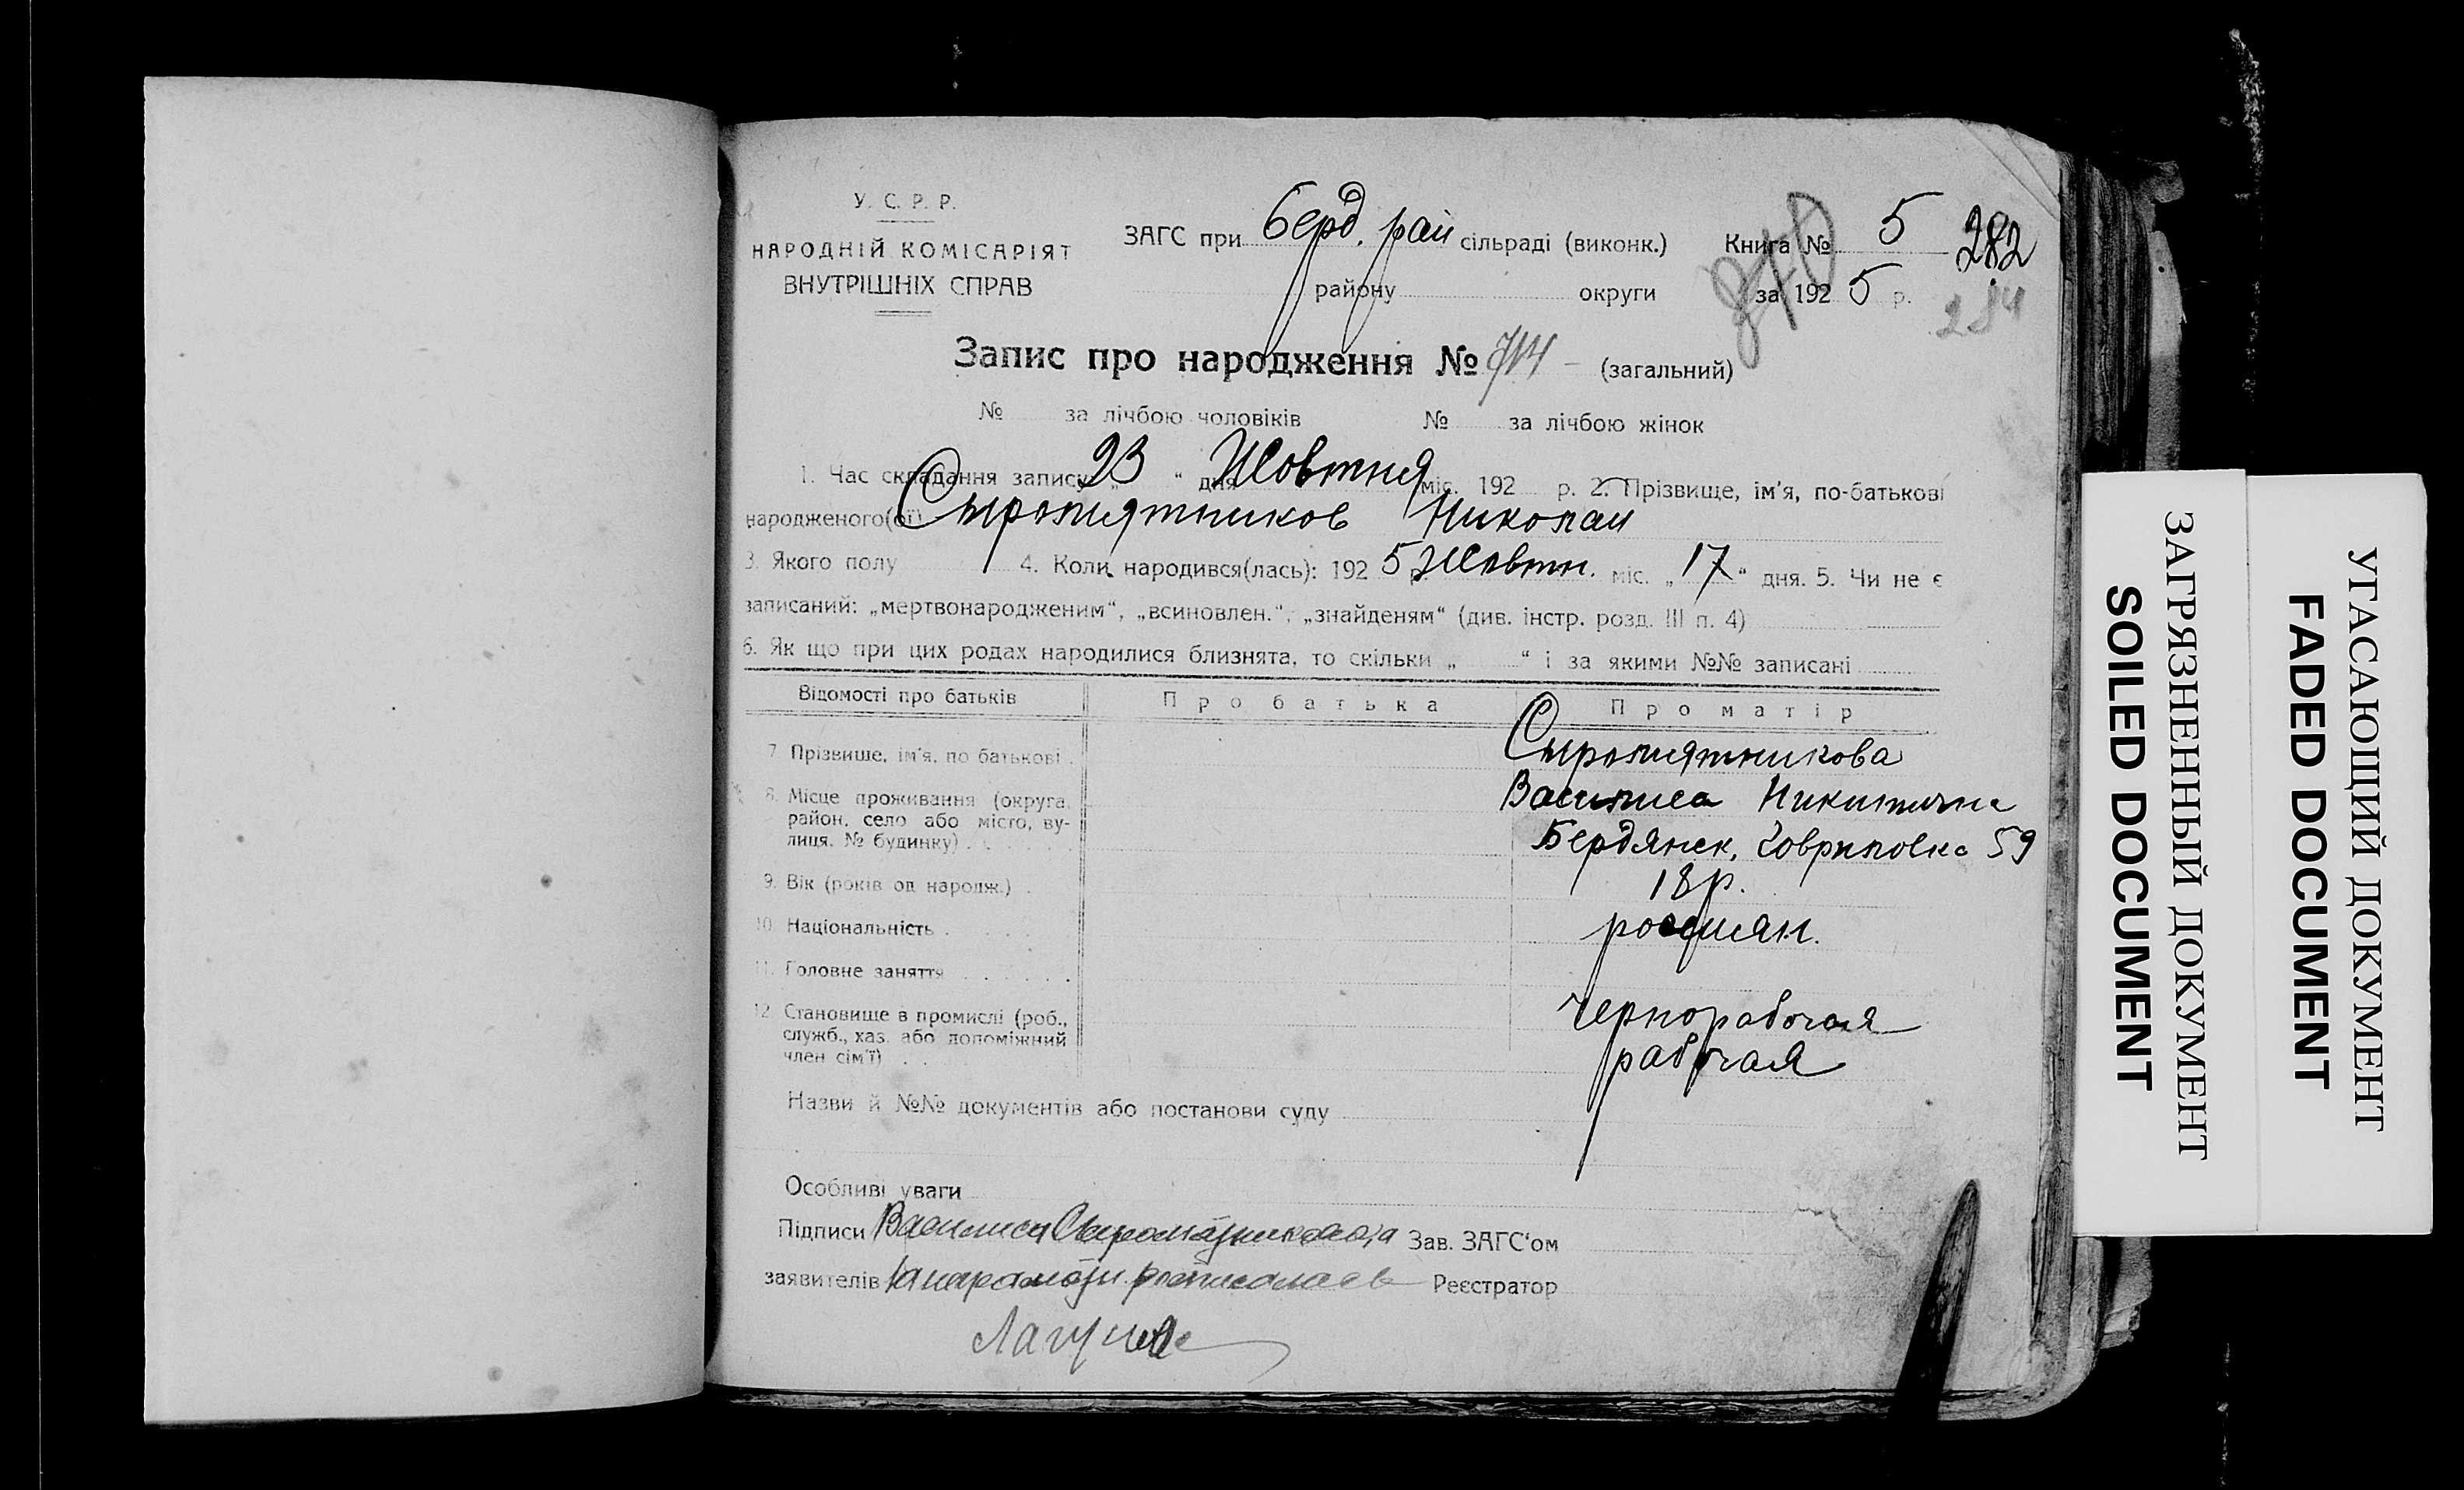 У. С. Р. Р.
НАРОДНІЙ КОМІСАРІЯТ
ВНУТРІШНІХ СПРАВ
ЗАГС при Берд. рай сільраді (виконк.)
району округи
Книга № 5 282
за 192 5 р. 284
Запис про народження № 714 – (загальний)
№ за лічбою чоловіків № за лічбою жінок
1. Час складання запису „ 23 “ дня Жовтня міс. 192 р. 2. Прізвище, ім'я, по-батькові
народженого(ої) Сыропятников Николай
3. Якого полу 4. Коли народився(лась): 192 5 р Жовтн. міс. „ 17 “ дня. 5. Чи не є
записаний: „мертвонародженим“, „всиновлен.“, „знайденям“ (див. інстр. розд. III п. 4)
6. Як що при цих родах народилися близнята, то скільки „ “ і за якими №№ записані
Відомості про батьків Про батька Про матір
7. Прізвище, ім'я, по батькові . Сыропятникова
8. Місце проживання (округа, район, село або місто, вулиця, № будинку) . Василиса Никитична
Бердянск, 59
9. Вік (років од народж.) . 18 р.
10. Національність . росиян.
11. Головне заняття . Чернорабочая
12. Становище в промислі (роб., служб., хаз. або допоміжний член сім'ї) . . рабочая
Назви й №№ документів або постанови суду
Особливі уваги
Підписи Василиса Зав. ЗАГС'ом
заявителів Реєстратор
ЗАГРЯЗНЕННЫЙ ДОКУМЕНТ
SOILED DOCUMENT
УГАСАЮЩИЙ ДОКУМЕНТ
FADED DOCUMENT